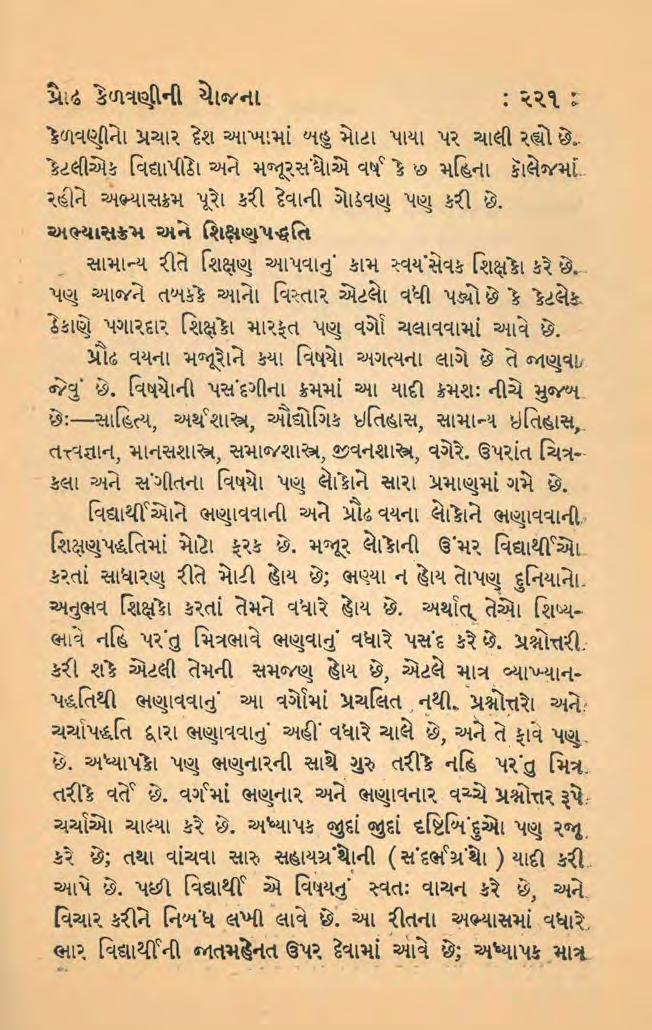 પ્રૌઢ કેળવણીની યોજના : ૨૨૧ :
કેળવણીનો પ્રચાર દેશ આખામાં બહુ મોટા પાયા પર ચાલી રહ્યો છે.
કેટલીએક વિદ્યાપીઠો અને મજૂરસંઘોએ વર્ષ કે છ મહિના કૉલેજમાં
રહીને અભ્યાસક્રમ પૂરો કરી દેવાની ગોઠવણ પણ કરી છે.
અભ્યાસક્રમ અને શિક્ષણપદ્ધતિ
સામાન્ય રીતે શિક્ષણ આપવાનું કામ સ્વયંસેવક શિક્ષકો કરે છે.
પણ આજને તબક્કે આનો વિસ્તાર એટલો વધી પડ્યો છે કે કેટલેક
ઠેકાણે પગારદાર શિક્ષકો મારફત પણ વર્ગો ચલાવવામાં આવે છે.
પ્રૌઢ વયના મજૂરોને કયા વિષયો અગત્યના લાગે છે તે જાણવા
જેવું છે. વિષયોની પસંદગીના ક્રમમાં આ યાદી ક્રમશઃ નીચે મુજબ
છેઃ—સાહિત્ય, અર્થશાસ્ત્ર, ઔદ્યોગિક ઇતિહાસ, સામાન્ય ઇતિહાસ,
તત્ત્વજ્ઞાન, માનસશાસ્ત્ર, સમાજશાસ્ત્ર, જીવનશાસ્ત્ર, વગેરે. ઉપરાંત ચિત્ર-
કલા અને સંગીતના વિષયો પણ લોકોને સારા પ્રમાણમાં ગમે છે.
વિદ્યાર્થીઓને ભણાવવાની અને પ્રૌઢ વયના લોકોને ભણાવવાની
શિક્ષણપદ્ધતિમાં મોટો ફરક છે. મજૂર લોકોની ઉંમર વિદ્યાર્થીઓ
કરતાં સાધારણ રીતે મોટી હોય છે; ભણ્યા ન હોય તોપણ દુનિયાનો
અનુભવ શિક્ષકો કરતાં તેમને વધારે હોય છે. અર્થાત્ તેઓ શિષ્ય-
ભાવે નહિ પરંતુ મિત્રભાવે ભણવાનું વધારે પસંદ કરે છે. પ્રશ્નોત્તરી
કરી શકે એટલી તેમની સમજણ હોય છે, એટલે માત્ર વ્યાખ્યાન-
પદ્ધતિથી ભણાવવાનું આ વર્ગોમાં પ્રચલિત નથી. પ્રશ્નોત્તરો અને
ચર્ચાપદ્ધતિ દ્વારા ભણાવવાનું અહીં વધારે ચાલે છે, અને તે ફાવે પણ
છે. અધ્યાપકો પણ ભણનારની સાથે ગુરુ તરીકે નહિ પરંતુ મિત્ર
તરીકે વર્તે છે. વર્ગમાં ભણનાર અને ભણાવનાર વચ્ચે પ્રશ્નોત્તર રૂપે
ચર્ચાઓ ચાલ્યા કરે છે. અધ્યાપક જુદાં જુદાં દૃષ્ટિબિંદુઓ પણ રજૂ
કરે છે; તથા વાંચવા સારુ સહાયગ્રંથોની ( સંદર્ભગ્રંથો ) યાદી કરી
આપે છે. પછી વિદ્યાર્થી એ વિષયનું સ્વતઃ વાચન કરે છે, અને
વિચાર કરીને નિબંધ લખી લાવે છે. આ રીતના અભ્યાસમાં વધારે
ભાર વિદ્યાર્થીની જાતમહેનત ઉપર દેવામાં આવે છે; અધ્યાપક માત્ર